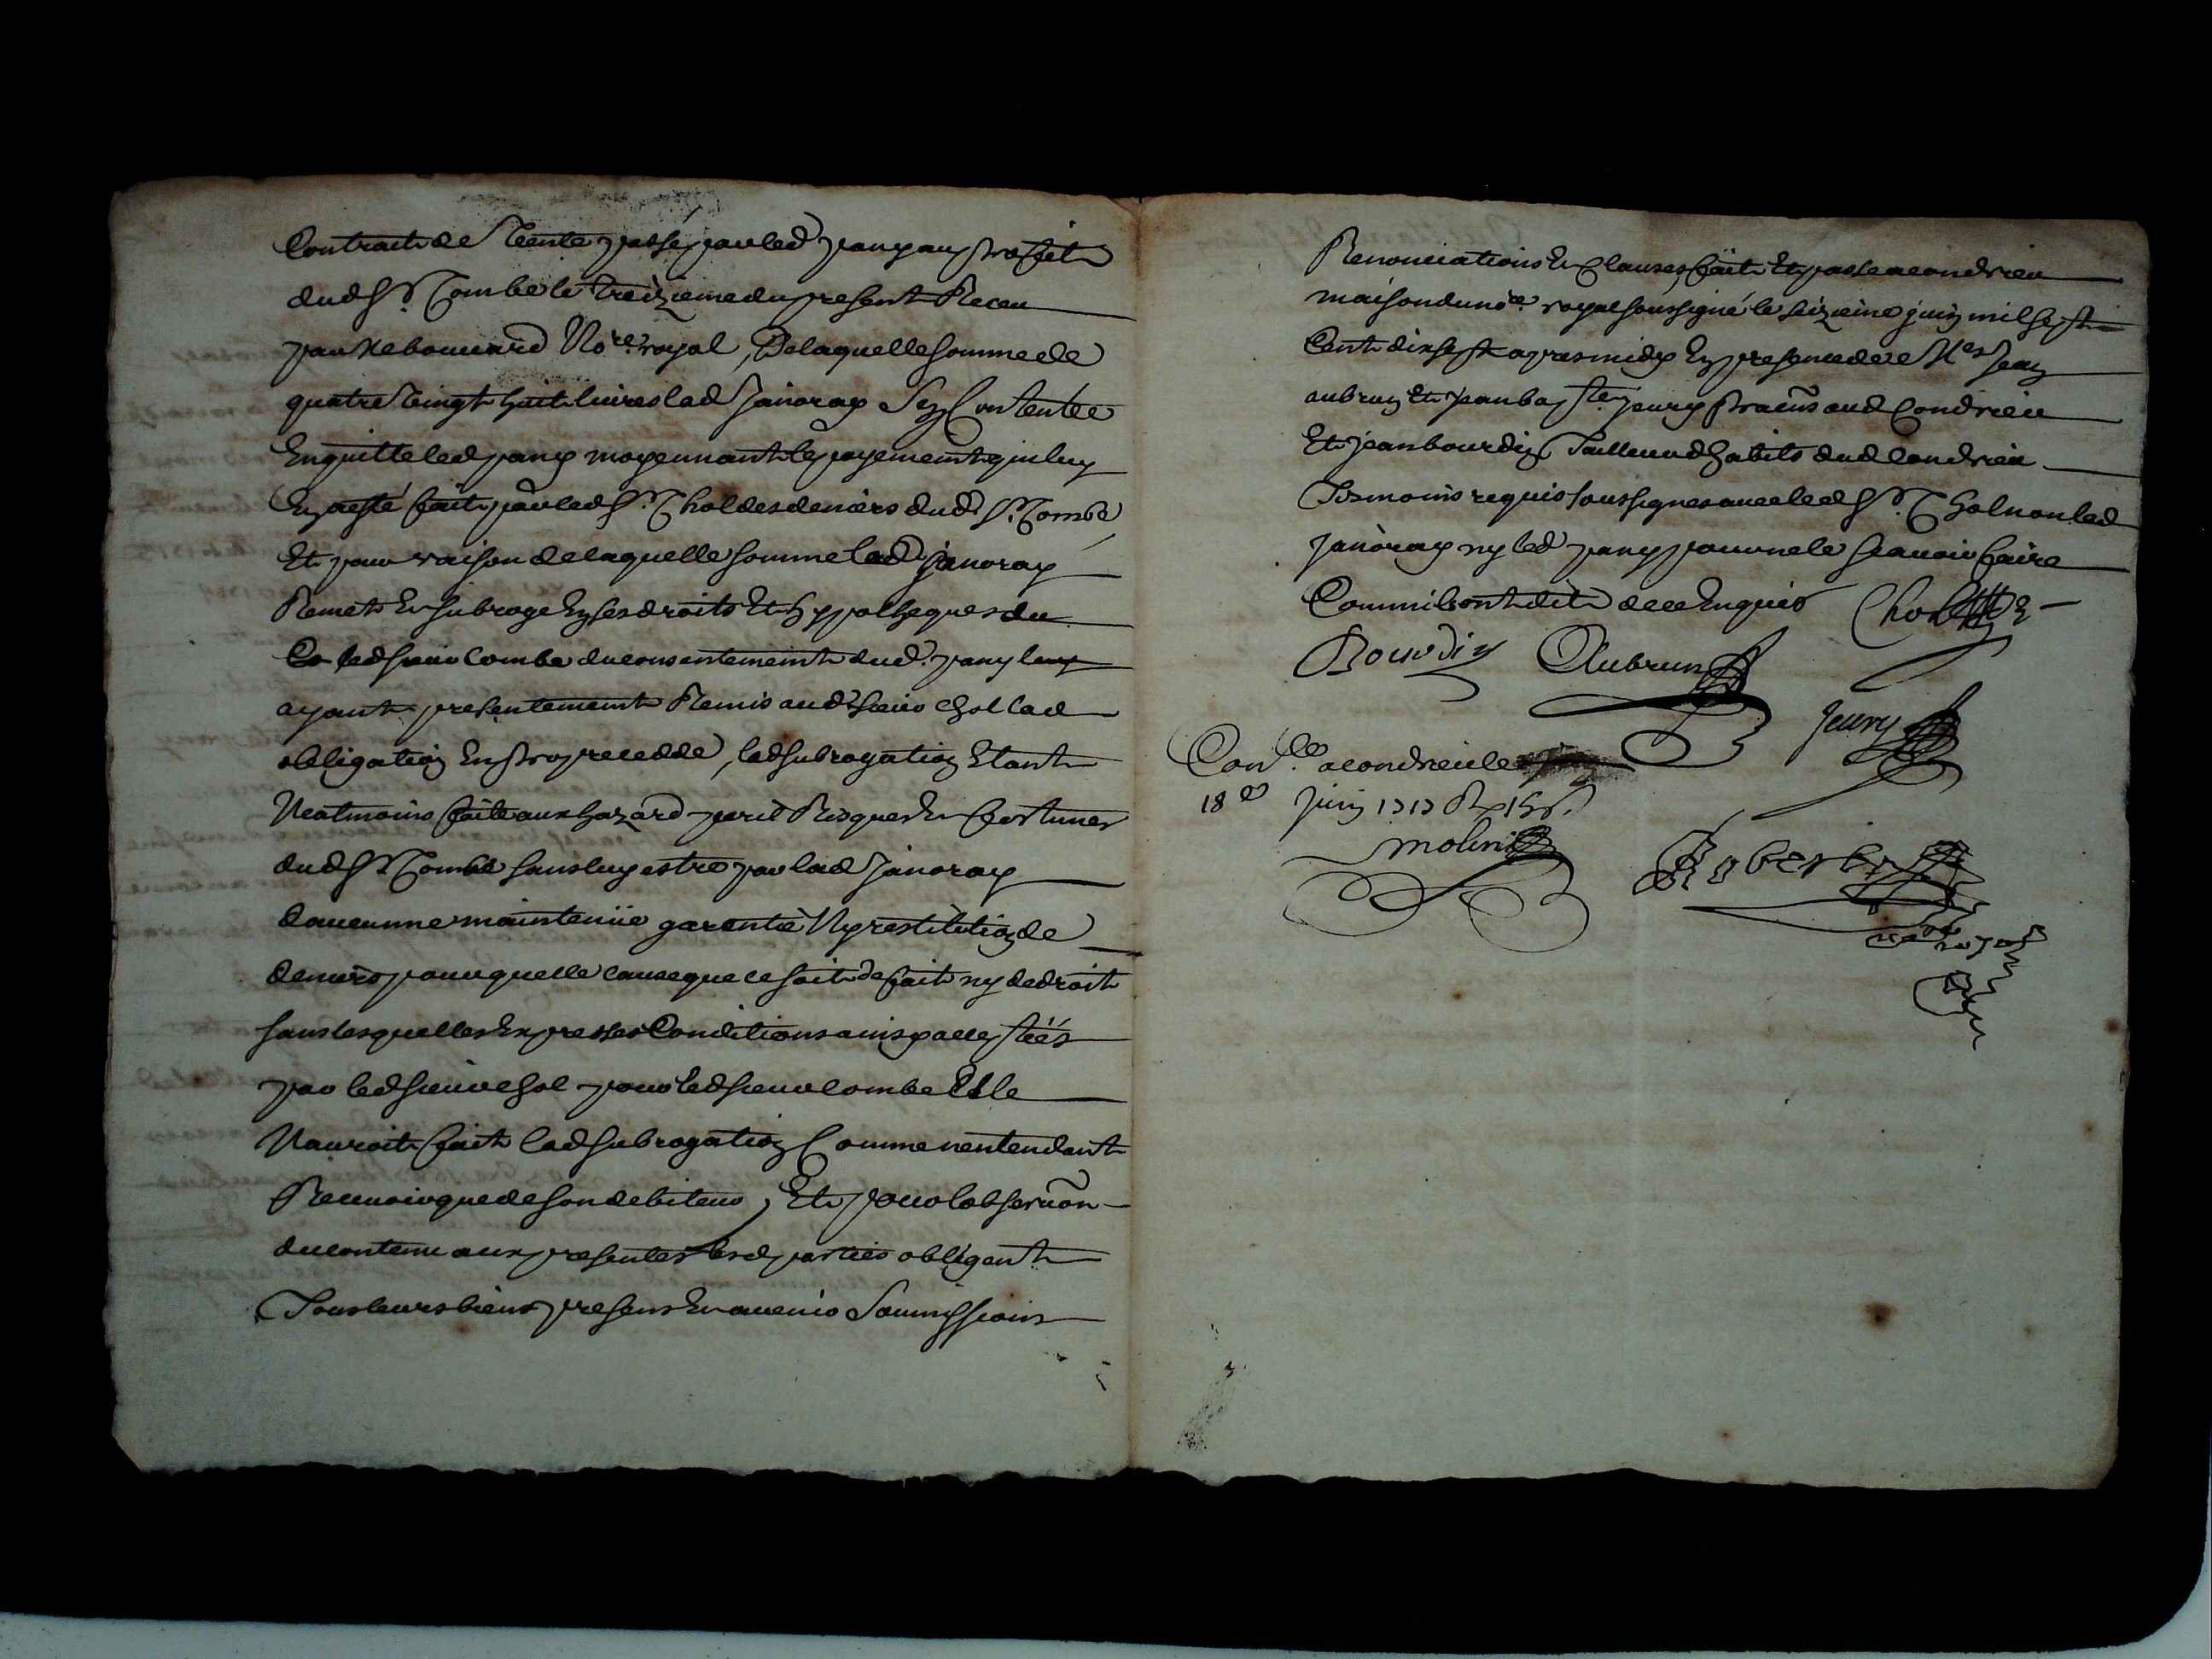 Contract de Vente passé par led pany au proffit
dud Sr Combe le treizieme du present Receu
par Me bouuard Nore royal, De laquelle somme de
quatre Vingt huit liures lad Janoray S'en Contentée
En quitte led pany moyennant le payement qui luy
En a esté fait par led Sr Chol des deniers dud Sr Combe
Et pour raison de laquelle somme lad janoray
Remet Et subroge En ses droits Et hyppotheques
led sieur Combe du consentement dud pany luy
ayant presentement Remis aud sieur chol lad
obligation En procedde, lad subrogation Etant
Neatmoins faite aux hazard peril Risques Et fortunes
dud Sr Combe sans luy estre par lad Janoray
d'aucunne maintenüe garentie Ny restitution de
deniers pour quelle cause que ce soit de fait ny de droit
sans lesquelles Expresses Conditions ainsy acceptéés
par led sieur chol pour led sieur combe Elle
N'auroit fait lad subrogation Comme n'entendant
Receuoir que de son debiteur, Et pour l'obseruaon
du contenu aux presentes lesd parties obligent
Tous leurs biens presens Et auenir Soumissions
Renonciations Et Clauses, fait Et passé a condrieu
maison du nore royal soussigné le seizieme juin mil sept
Cent dix sept apres midy En presence de Mes Jean
aubrun Et Jean bapte jeury praens aud Condrieu
Et jean bourdin Tailleur d'habits dud Condrieu
Tesmoins requis soussignes auec led Sr Chol non lad
janoray ny led pany pour ne le scauoir faire
Comm'ils ont dit de ce Enquis Chol
Bourdin Aubrun
jeury
Conlé a condrieu le
18e juin 1717
molin
Robert
nore royal